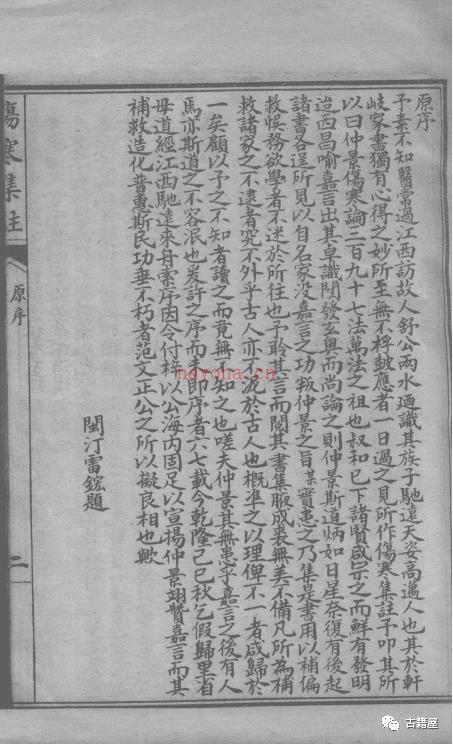 原序
予素不知醫常過江西訪故人舒公兩水迺識其族子馳遠天姿高邁人也其於軒
岐家書獨有心得之妙所至無不桴皷應者一日過之見所作傷寒集註予叩其所
以曰仲景傷寒論三百九十七法萬法之祖也叔和已下諸賢咸宗之而鮮有發明
迨西昌喻嘉言出其卓識闡發玄奧而尚論之則仲景斯道炳如日星奈復有後起
諸書各逞所見以自名家沒嘉言之功叛仲景之旨某實恚之乃集是書用以補偏
救悞務欲學者不迷於所往也予聆其言而閱其書集腋成裘無美不備凡所為補
救諸家之不逮者究不外乎古人亦不泥於古人也概準之以理俾不一者咸歸於
一矣顧以予之不知者讀之而竟無不知之也嗟夫仲景其無恚乎嘉言之後有人
焉亦斯道之不容泯也爰許之序而未即序者六七載今乾隆己巳秋乞假歸里省
母道經江西馳遠來舟索序因令付梓以公海內固足以宣揚仲景翊贊嘉言而其
補救造化普惠斯民功垂不朽者范文正公之所以擬良相也歟
閩汀雷鋐題
傷寒集註
原序
二
nayona.cn
古籍屋